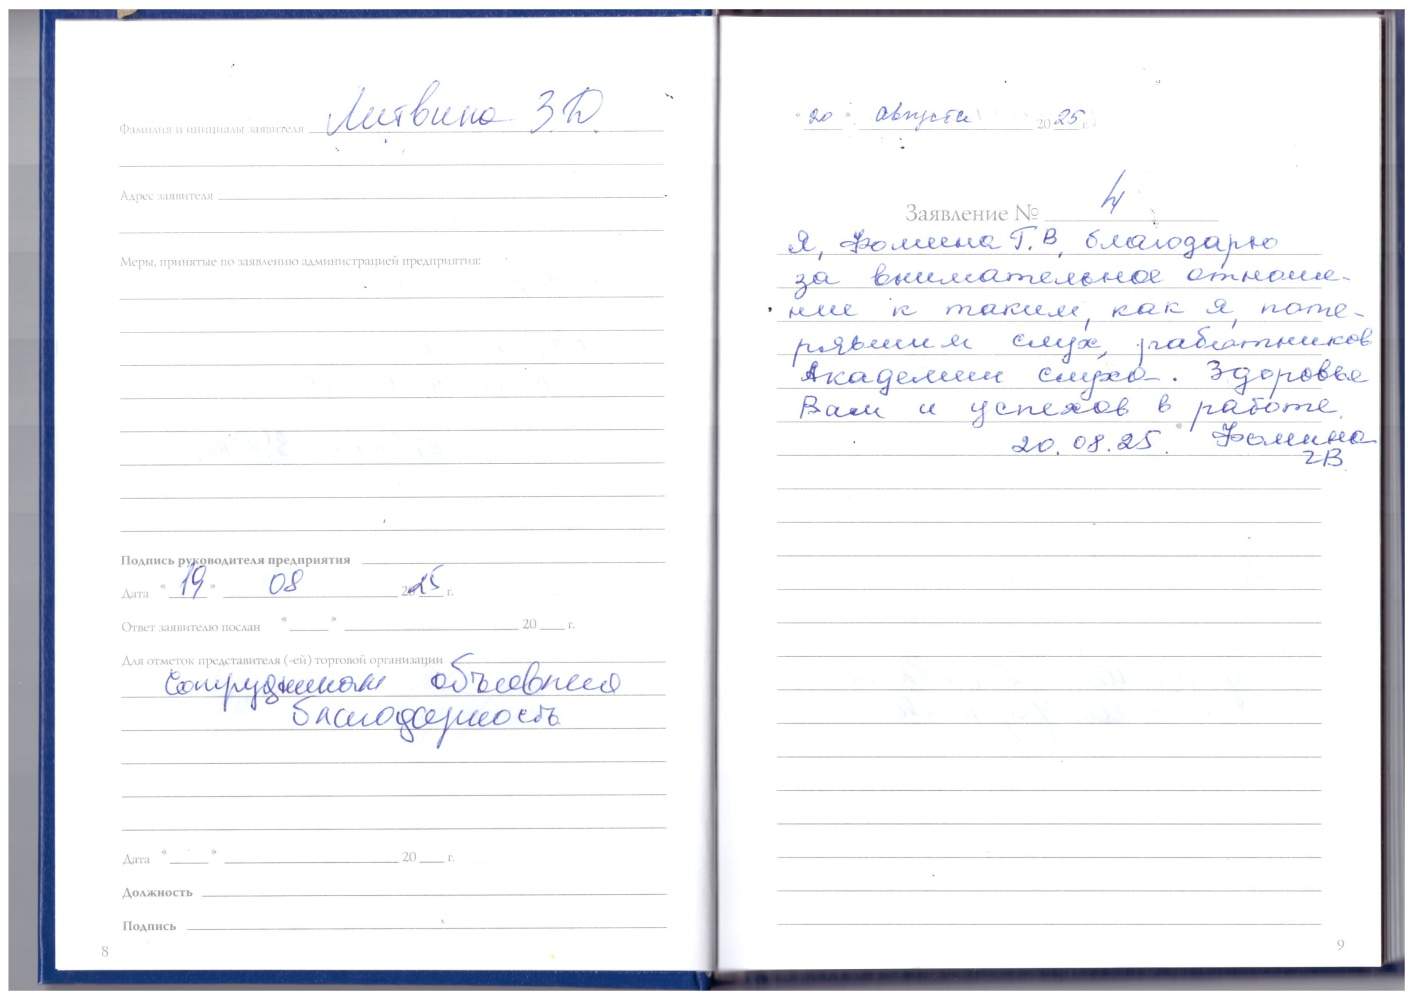 Фамилия и инициалы заявителя Литвина З.Д.
Адрес заявителя
Меры, принятые по заявлению администрацией предприятия:
Подпись руководителя предприятия
Дата "19" 08 2025 г.
Ответ заявителю послан "    " 20    г.
Для отметок представителя (-ей) торговой организации
Сотрудникам объявлена
благодарность
Дата "    " 20    г.
Должность
Подпись
8
"20" августа 2025 г.
Заявление № 4
Я, Фомина Г.В, благодарю
за внимательное отноше-
ние к таким, как я, поте-
рявшим слух, работников
Академии слуха. Здоровья
Вам и успехов в работе.
20.08.25. Фомина
ГВ
9